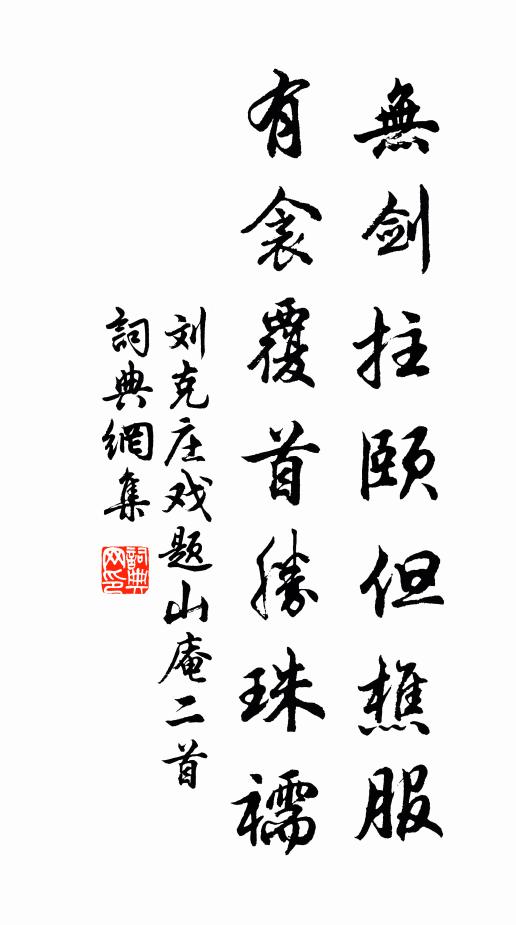 無剑拄颐但樵服
有衾覆首勝珠襦
刘克庄戏题山庵二首
詞典網集
詞典网印